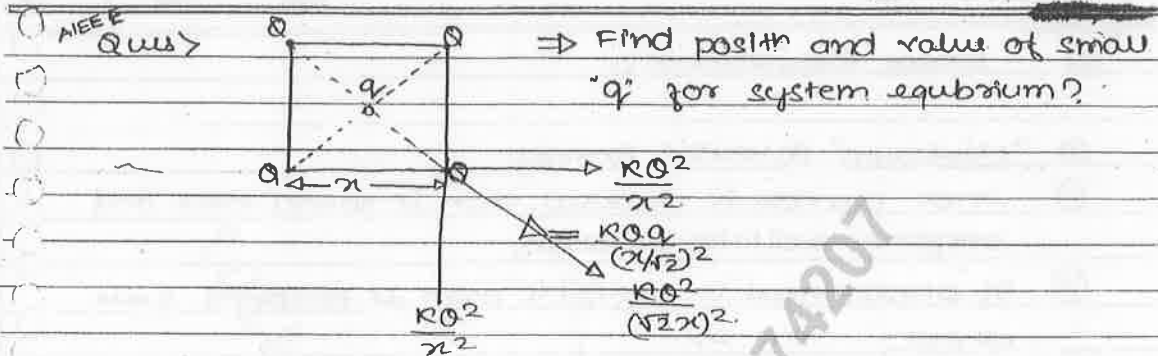 AIEEE
Ques>
Q Q
⇒ Find posith and value of small
"q" for system equbrium?
q
Q x Q
KQ²/x²
= KQq/(x/√2)²
KQ²/(√2x)²
KQ²/x²
74207